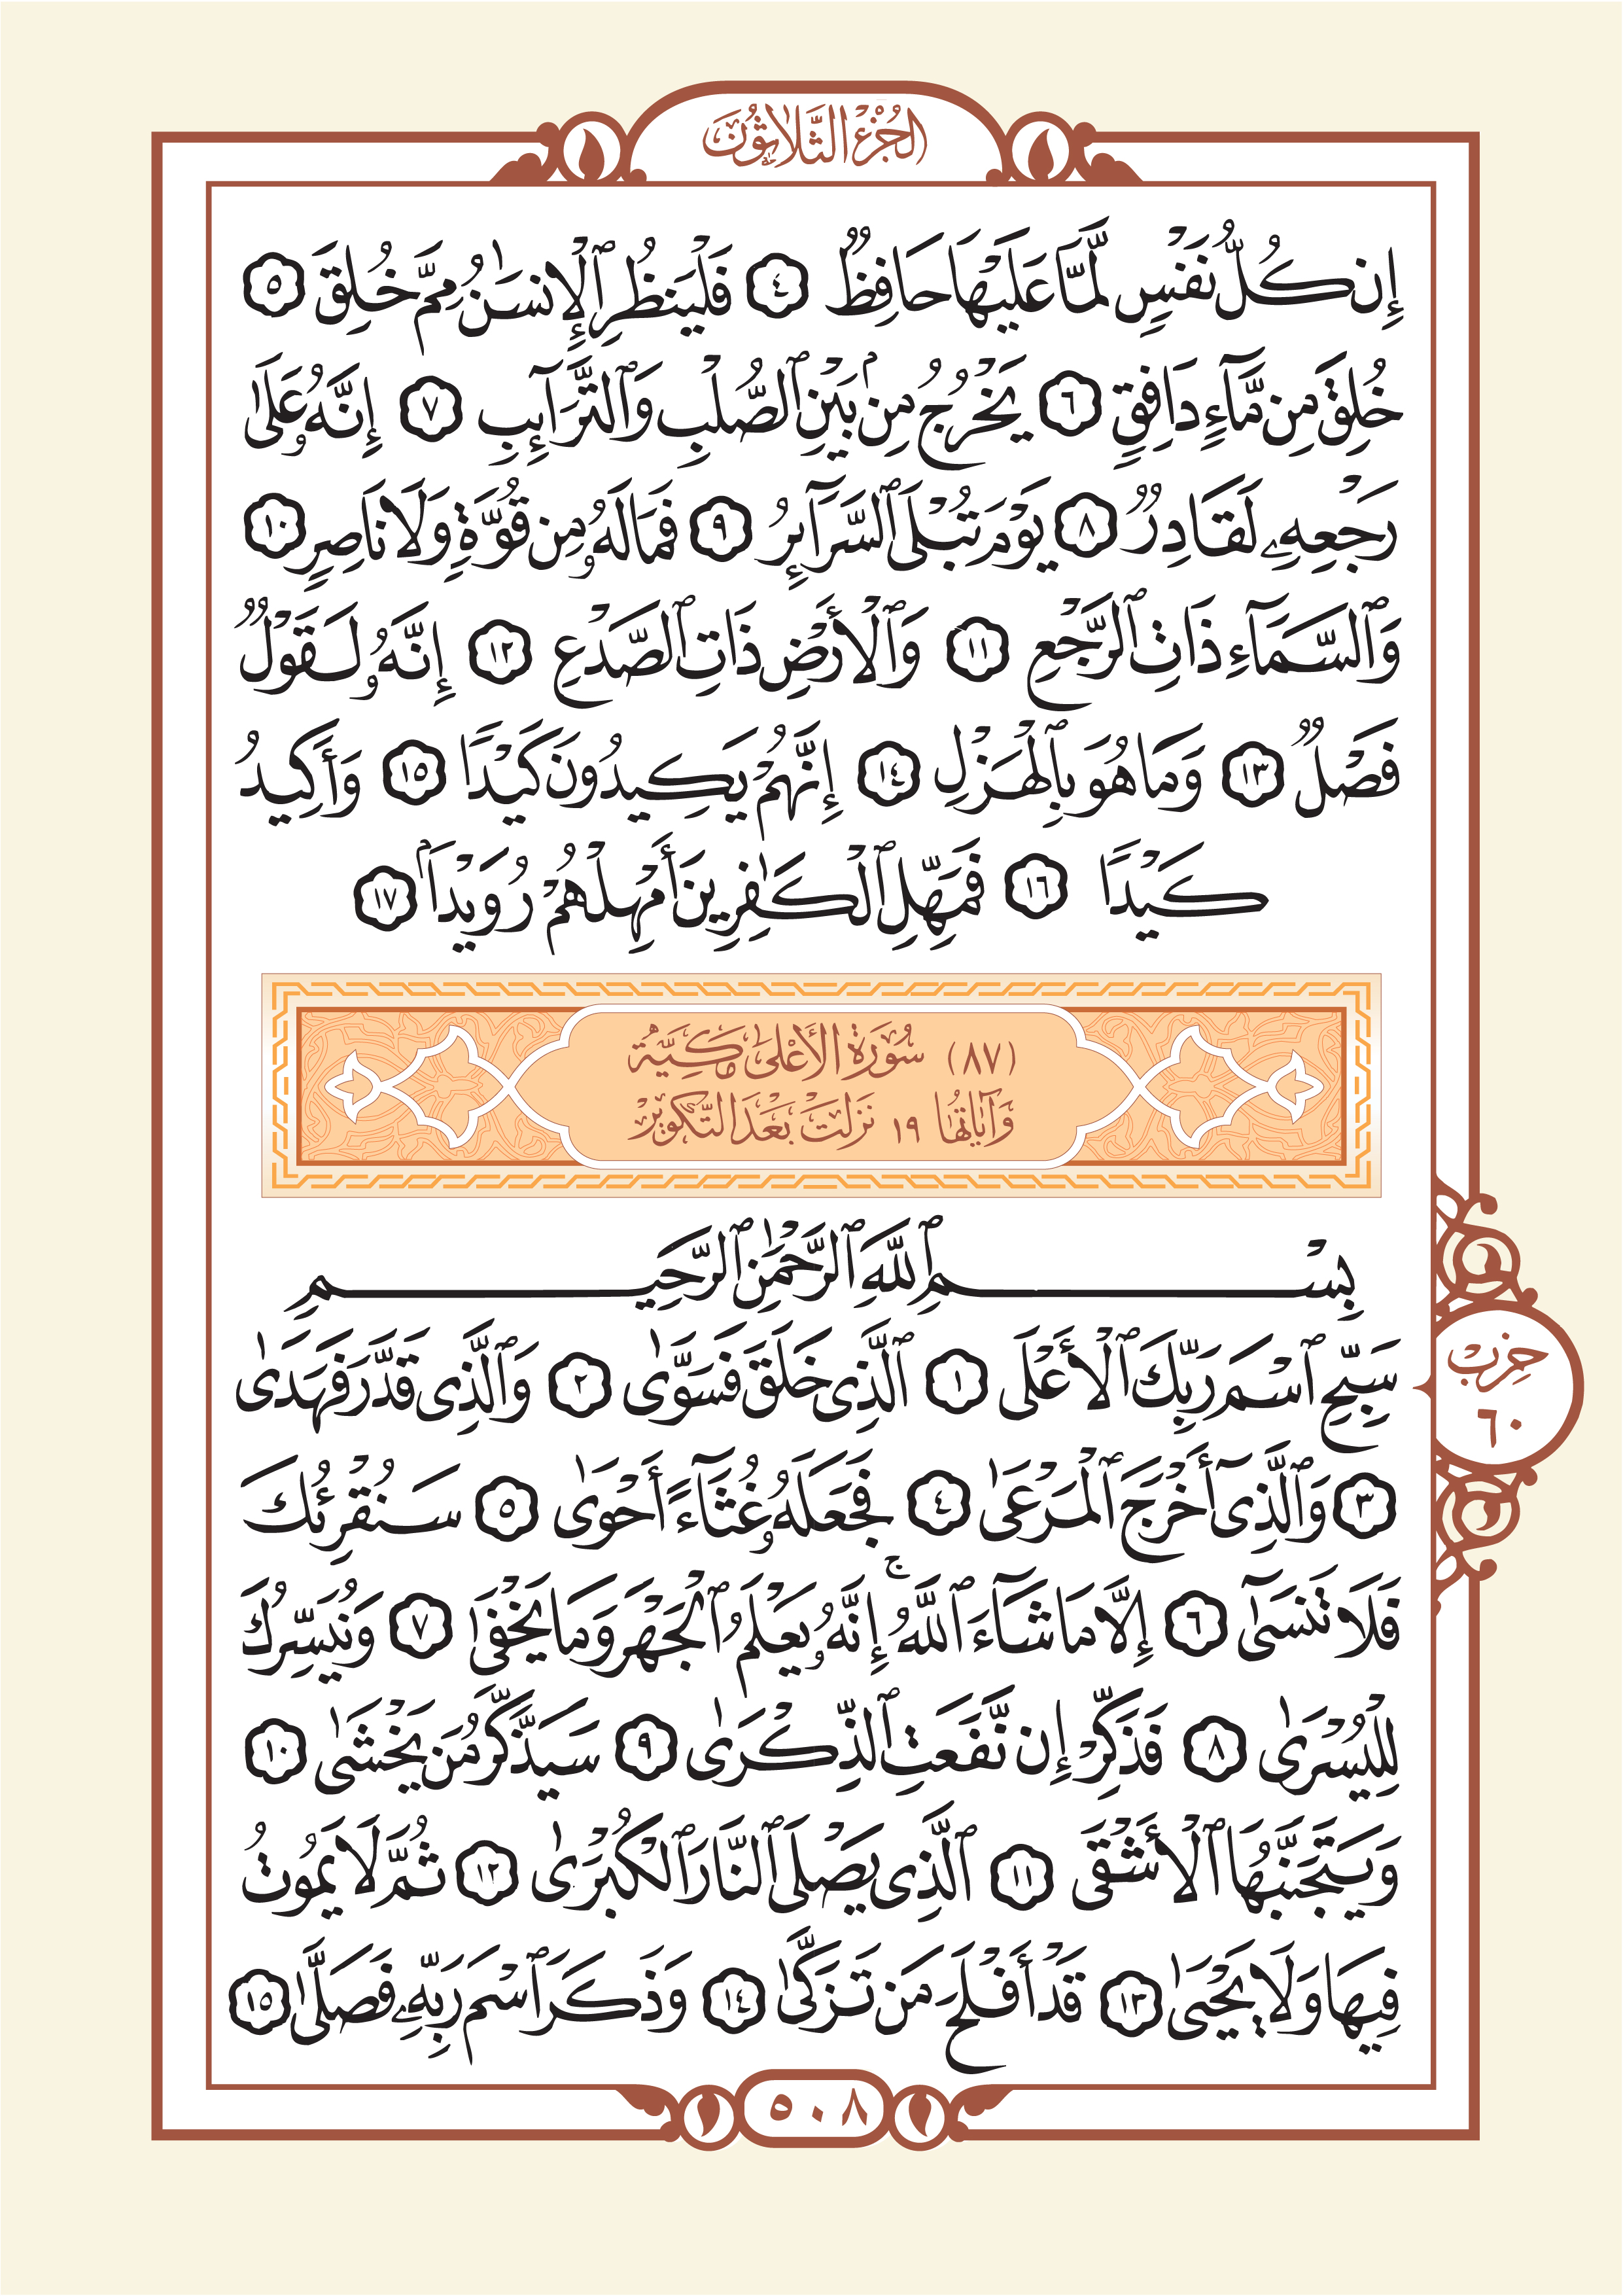 الجُزْءُ الثَّلَاثُونَ
إِن كُلُّ نَفْسٍ لَّمَّا عَلَيْهَا حَافِظٌ ٤ فَلْيَنظُرِ ٱلْإِنسَٰنُ مِمَّ خُلِقَ ٥
خُلِقَ مِن مَّآءٍ دَافِقٍ ٦ يَخْرُجُ مِنۢ بَيْنِ ٱلصُّلْبِ وَٱلتَّرَآئِبِ ٧ إِنَّهُۥ عَلَىٰ
رَجْعِهِۦ لَقَادِرٌ ٨ يَوْمَ تُبْلَى ٱلسَّرَآئِرُ ٩ فَمَا لَهُۥ مِن قُوَّةٍ وَلَا نَاصِرٍ ١٠
وَٱلسَّمَآءِ ذَاتِ ٱلرَّجْعِ ١١ وَٱلْأَرْضِ ذَاتِ ٱلصَّدْعِ ١٢ إِنَّهُۥ لَقَوْلٌ
فَصْلٌ ١٣ وَمَا هُوَ بِٱلْهَزْلِ ١٤ إِنَّهُمْ يَكِيدُونَ كَيْدًا ١٥ وَأَكِيدُ
كَيْدًا ١٦ فَمَهِّلِ ٱلْكَٰفِرِينَ أَمْهِلْهُمْ رُوَيْدَۢا ١٧
(٨٧) سُورَةُ الأَعْلَىٰ مَكِيَّةٌ
وَآيَاتُهَا ١٩ نَزَلَتْ بَعْدَ التَّكْوِيرْ
بِسْمِ ٱللَّهِ ٱلرَّحْمَٰنِ ٱلرَّحِيمِ
سَبِّحِ ٱسْمَ رَبِّكَ ٱلْأَعْلَى ١ ٱلَّذِى خَلَقَ فَسَوَّىٰ ٢ وَٱلَّذِى قَدَّرَ فَهَدَىٰ
٣ وَٱلَّذِىٓ أَخْرَجَ ٱلْمَرْعَىٰ ٤ فَجَعَلَهُۥ غُثَآءً أَحْوَىٰ ٥ سَنُقْرِئُكَ
فَلَا تَنسَىٰٓ ٦ إِلَّا مَا شَآءَ ٱللَّهُ ۚ إِنَّهُۥ يَعْلَمُ ٱلْجَهْرَ وَمَا يَخْفَىٰ ٧ وَنُيَسِّرُكَ
لِلْيُسْرَىٰ ٨ فَذَكِّرْ إِن نَّفَعَتِ ٱلذِّكْرَىٰ ٩ سَيَذَّكَّرُ مَن يَخْشَىٰ ١٠
وَيَتَجَنَّبُهَا ٱلْأَشْقَى ١١ ٱلَّذِى يَصْلَى ٱلنَّارَ ٱلْكُبْرَىٰ ١٢ ثُمَّ لَا يَمُوتُ
فِيهَا وَلَا يَحْيَىٰ ١٣ قَدْ أَفْلَحَ مَن تَزَكَّىٰ ١٤ وَذَكَرَ ٱسْمَ رَبِّهِۦ فَصَلَّىٰ ١٥
حِزْبْ
٦٠
٥٠٨